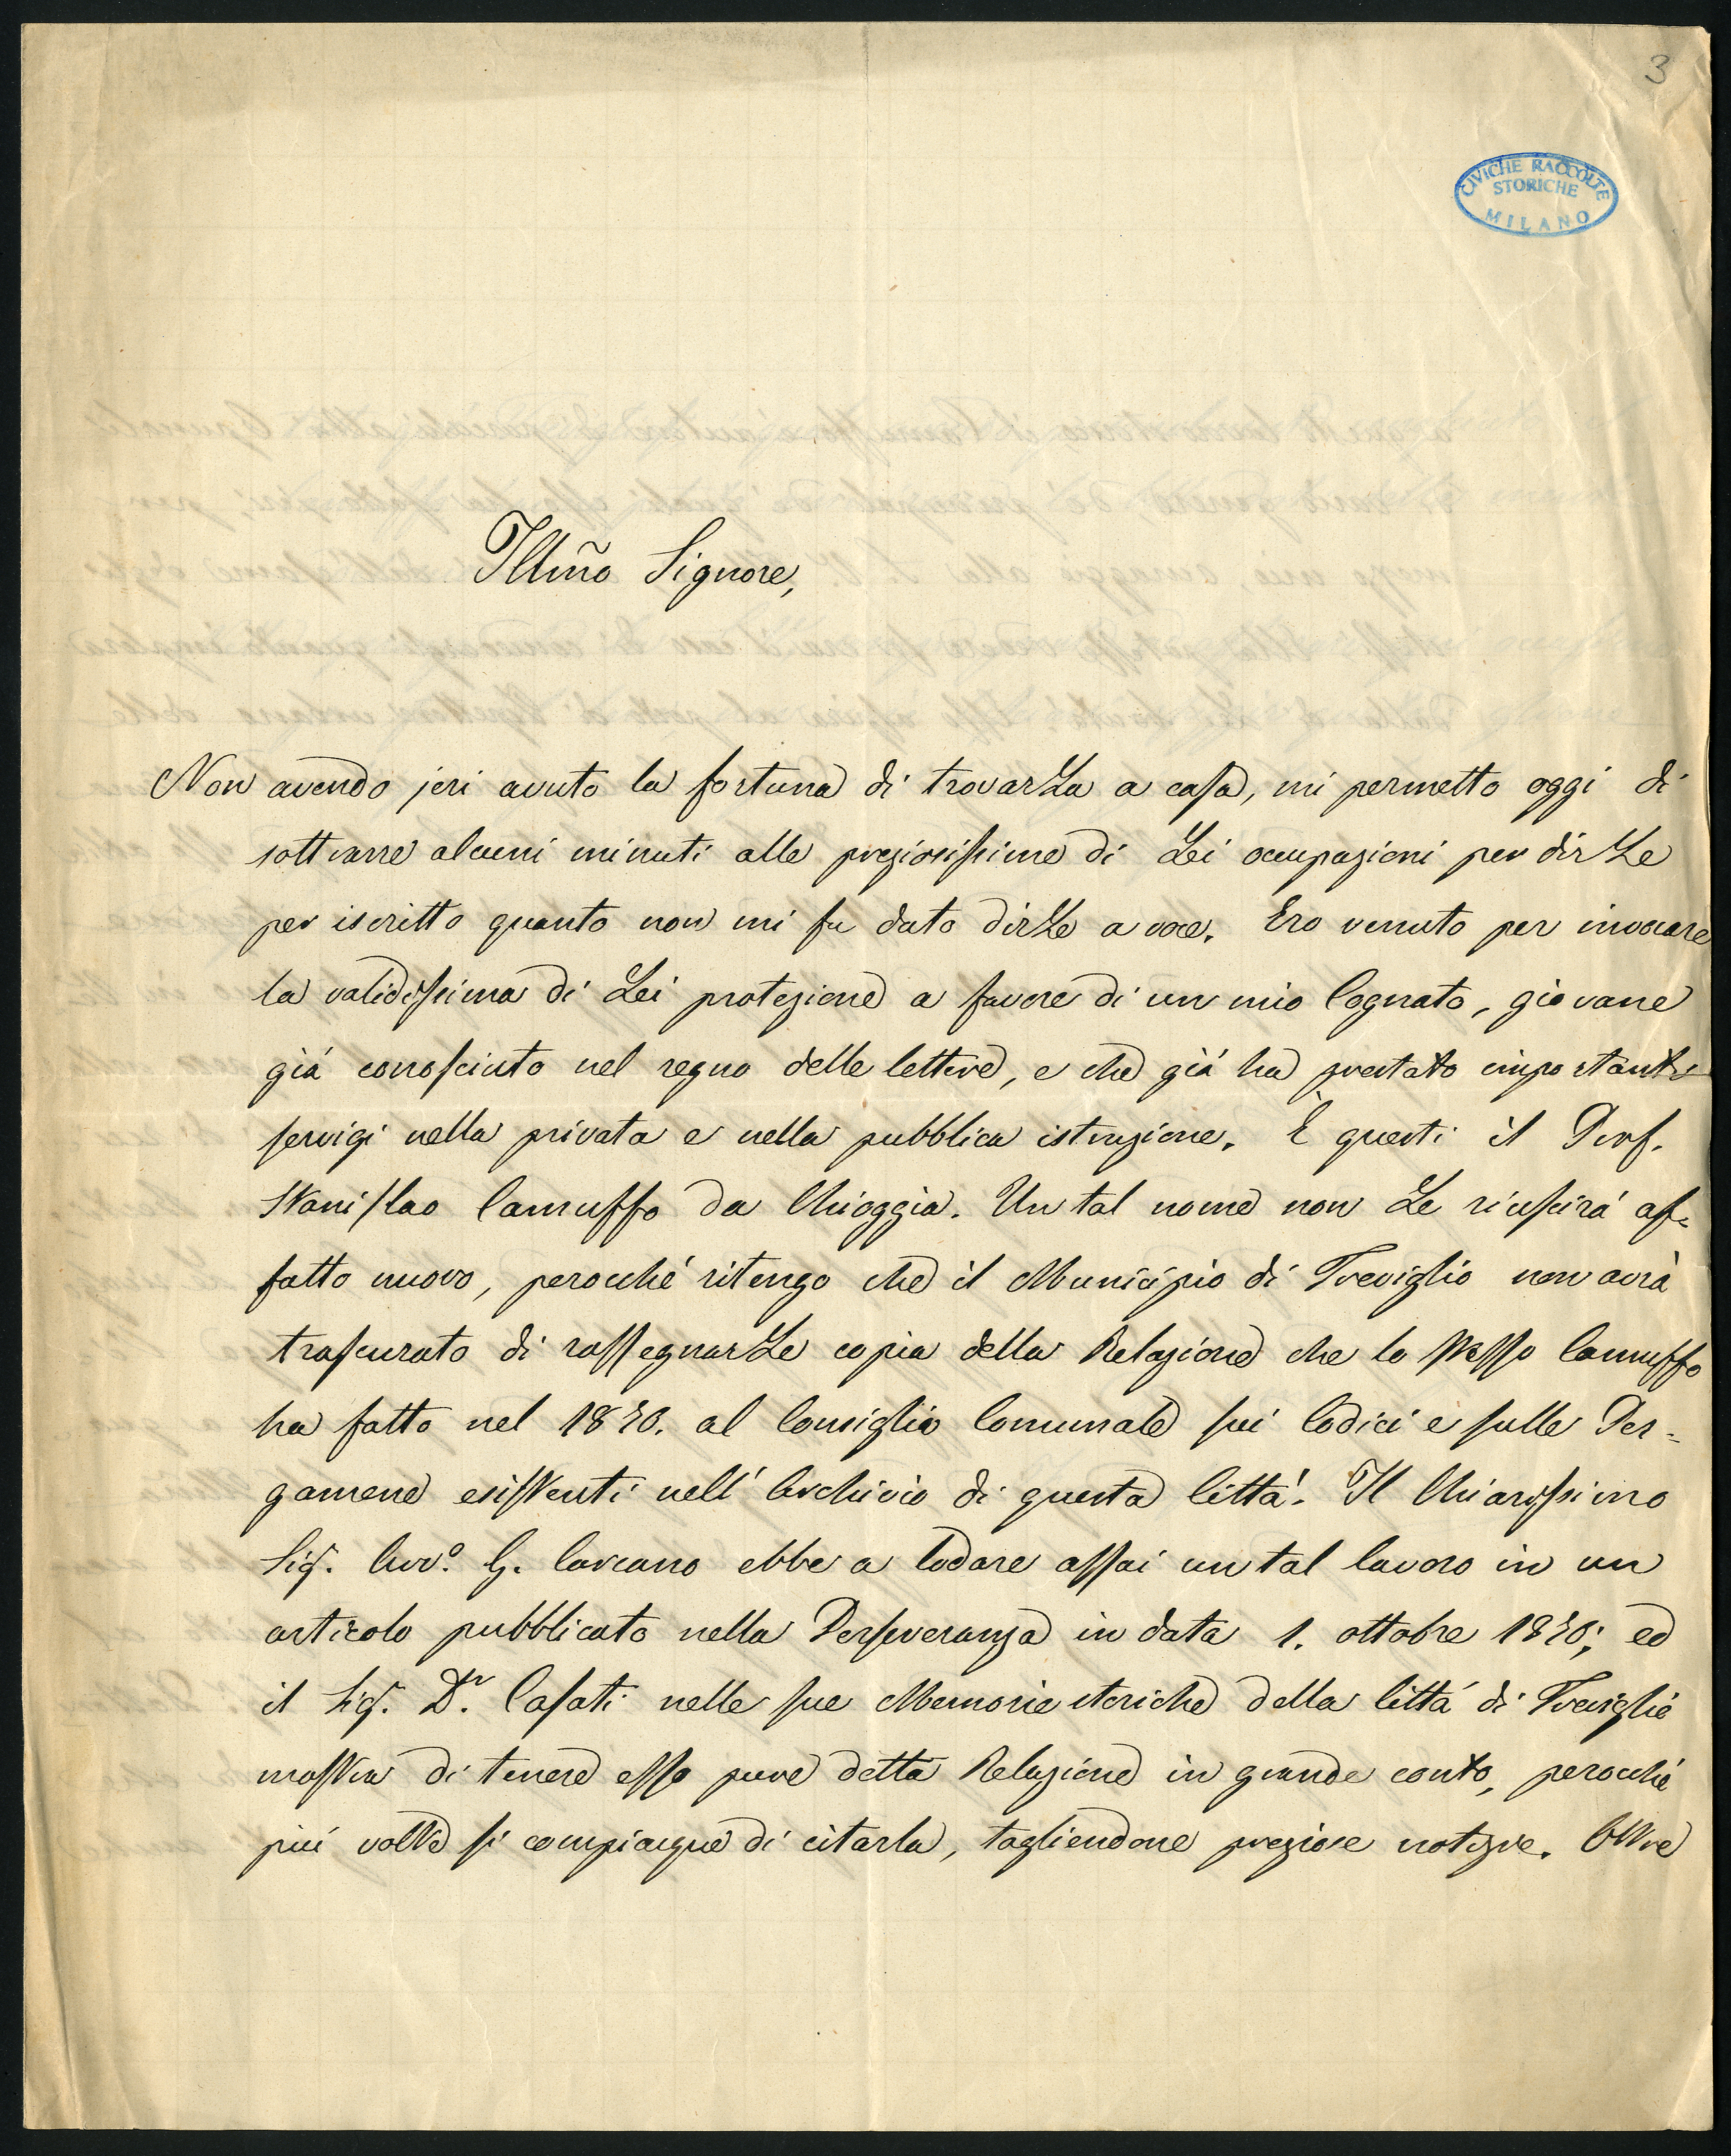 3
CIVICHE RACCOLTE
STORICHE
MILANO
Illm̃o Signore,
Non avendo jeri avuto la fortuna di trovarLa a casa, mi permetto oggi di
sottrarre alcuni minuti alle preziosissime di Lei occupazioni per dirLe
per iscritto quanto non mi fu dato dirLe a voce. Ero venuto per invocare
la validissima di Lei protezione a favore di un mio Cognato, giovane
già conosciuto nel regno delle lettere, e che già ha prestato importanti
servigi nella privata e nella pubblica istruzione. È questi il Prof.
Stanislao Carnuffo da Chioggia. Un tal nome non Le riuscirà af-
fatto nuovo, perocchè ritengo che il Municipio di Treviglio non avrà
trascurato di rassegnarLe copia della Relazione che lo stesso Carnuffo
ha fatto nel 1870. al Consiglio Comunale sui Codici e sulle Per-
gamene esistenti nell' Archivio di questa Città. Il Chiarissimo
Sig. Avv.o G. Carcano ebbe a lodare assai un tal lavoro in un
articolo pubblicato nella Perseveranza in data 1. ottobre 1870; ed
il Sig. D.r Casati nelle sue Memorie storiche della Città di Treviglio
mostra di tenere esso pure detta Relazione in grande conto, perocchè
più volte si compiacque di citarla, togliendone preziose notizie. Oltre